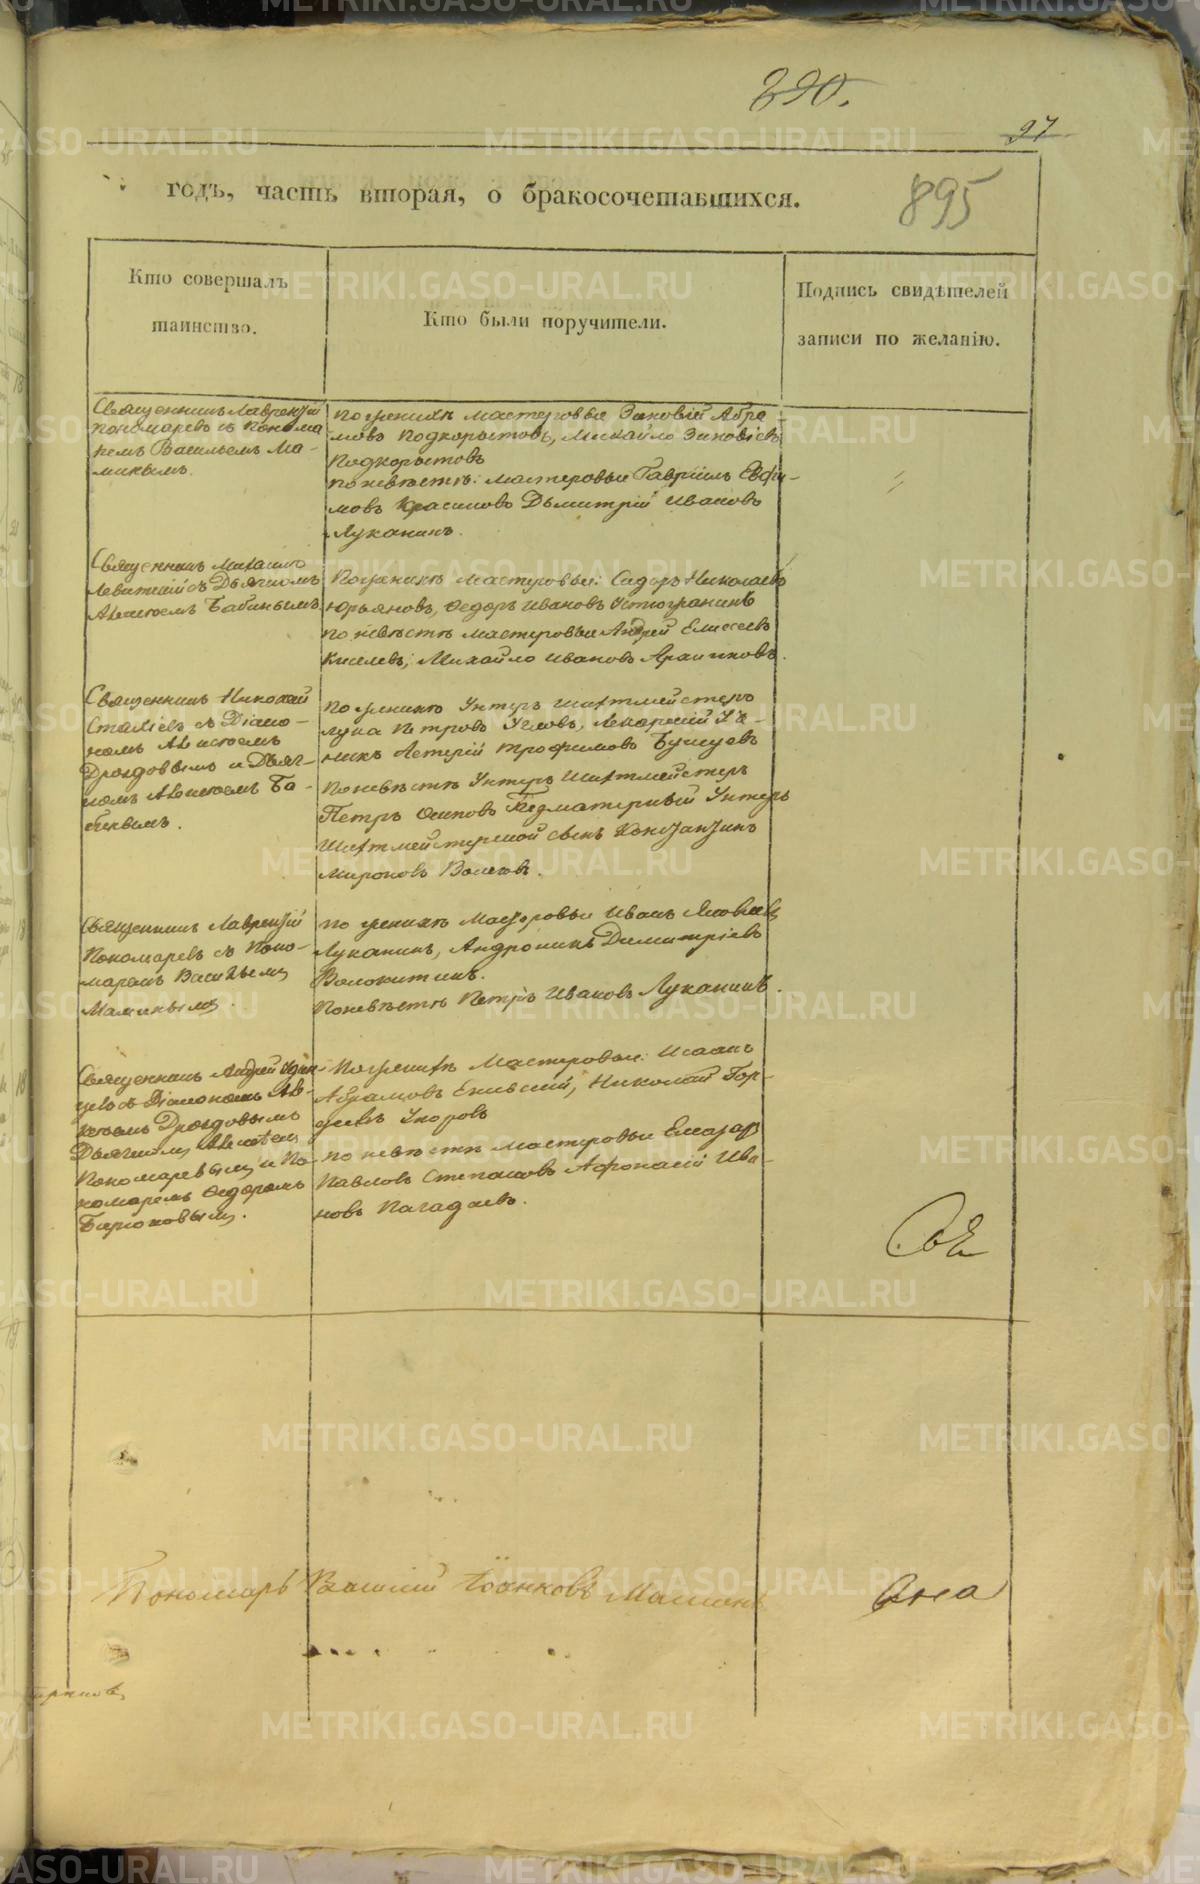 290.
97
годъ, часть вторая, о бракосочетавшихся.
895
Кто совершалъ
таинство.
Кто были поручители.
Подпись свидѣтелей
записи по желанію.
Священникъ Лаврентій
Пономаревъ съ Понома
ремъ Васильемъ Ма-
минымъ.
По женихѣ мастеровые Зиновій Абра
мовъ Подкорытовъ, Михайло Зиновіевъ
Подкорытовъ
по невѣстѣ: мастеровые Гавріилъ Евфи-
мовъ Дьмитрій Ивановъ
Луканинъ.
Священникъ Михаилъ
Левитскій съ Дьячкомъ
Алексѣемъ Бабинымъ
По женихѣ мастеровые: Сидоръ Николаевъ
Юрьяновъ, Ѳедоръ Ивановъ
по невѣстѣ мастеровые Андрей Елисѣевъ
Киселевъ, Михайло Ивановъ
Священникъ Николай
съ Діако-
номъ Алексѣемъ
Дроздовымъ и Дьяч-
комъ Алексѣемъ Ба-
бинымъ.
По женихѣ Унтеръ Шихтмейстеръ
Лука Петровъ Лекарскій Уче-
никъ Трофимовъ
По невѣстѣ Унтеръ Шихтмейстеръ
Петръ Осиповъ Унтеръ
Шихтмейстерской сынъ Константинъ
Мироновъ Волковъ.
Священникъ Лаврентій
Пономаревъ съ Поно-
маремъ Васильемъ
Маминымъ.
По женихѣ Мастеровые Иванъ Яковлевъ
Луканинъ, Андроникъ Димитріевъ
Волокитинъ.
По невѣстѣ Петръ Ивановъ Луканинъ.
Священникъ Андрей
съ Діакономъ Але-
ксѣемъ Дроздовымъ
Дьячкомъ Алексѣемъ
Пономаревымъ и По-
номаремъ Ѳедоромъ
Бирюковымъ.
По женихѣ Мастеровые: Исаакъ
Абрамовъ Николай Гор-
деевъ
по невѣстѣ мастеровые Елазаръ
Павловъ Степановъ Афонасій Ива-
новъ Пагадаевъ.
Пономарь Василій Мaминъ